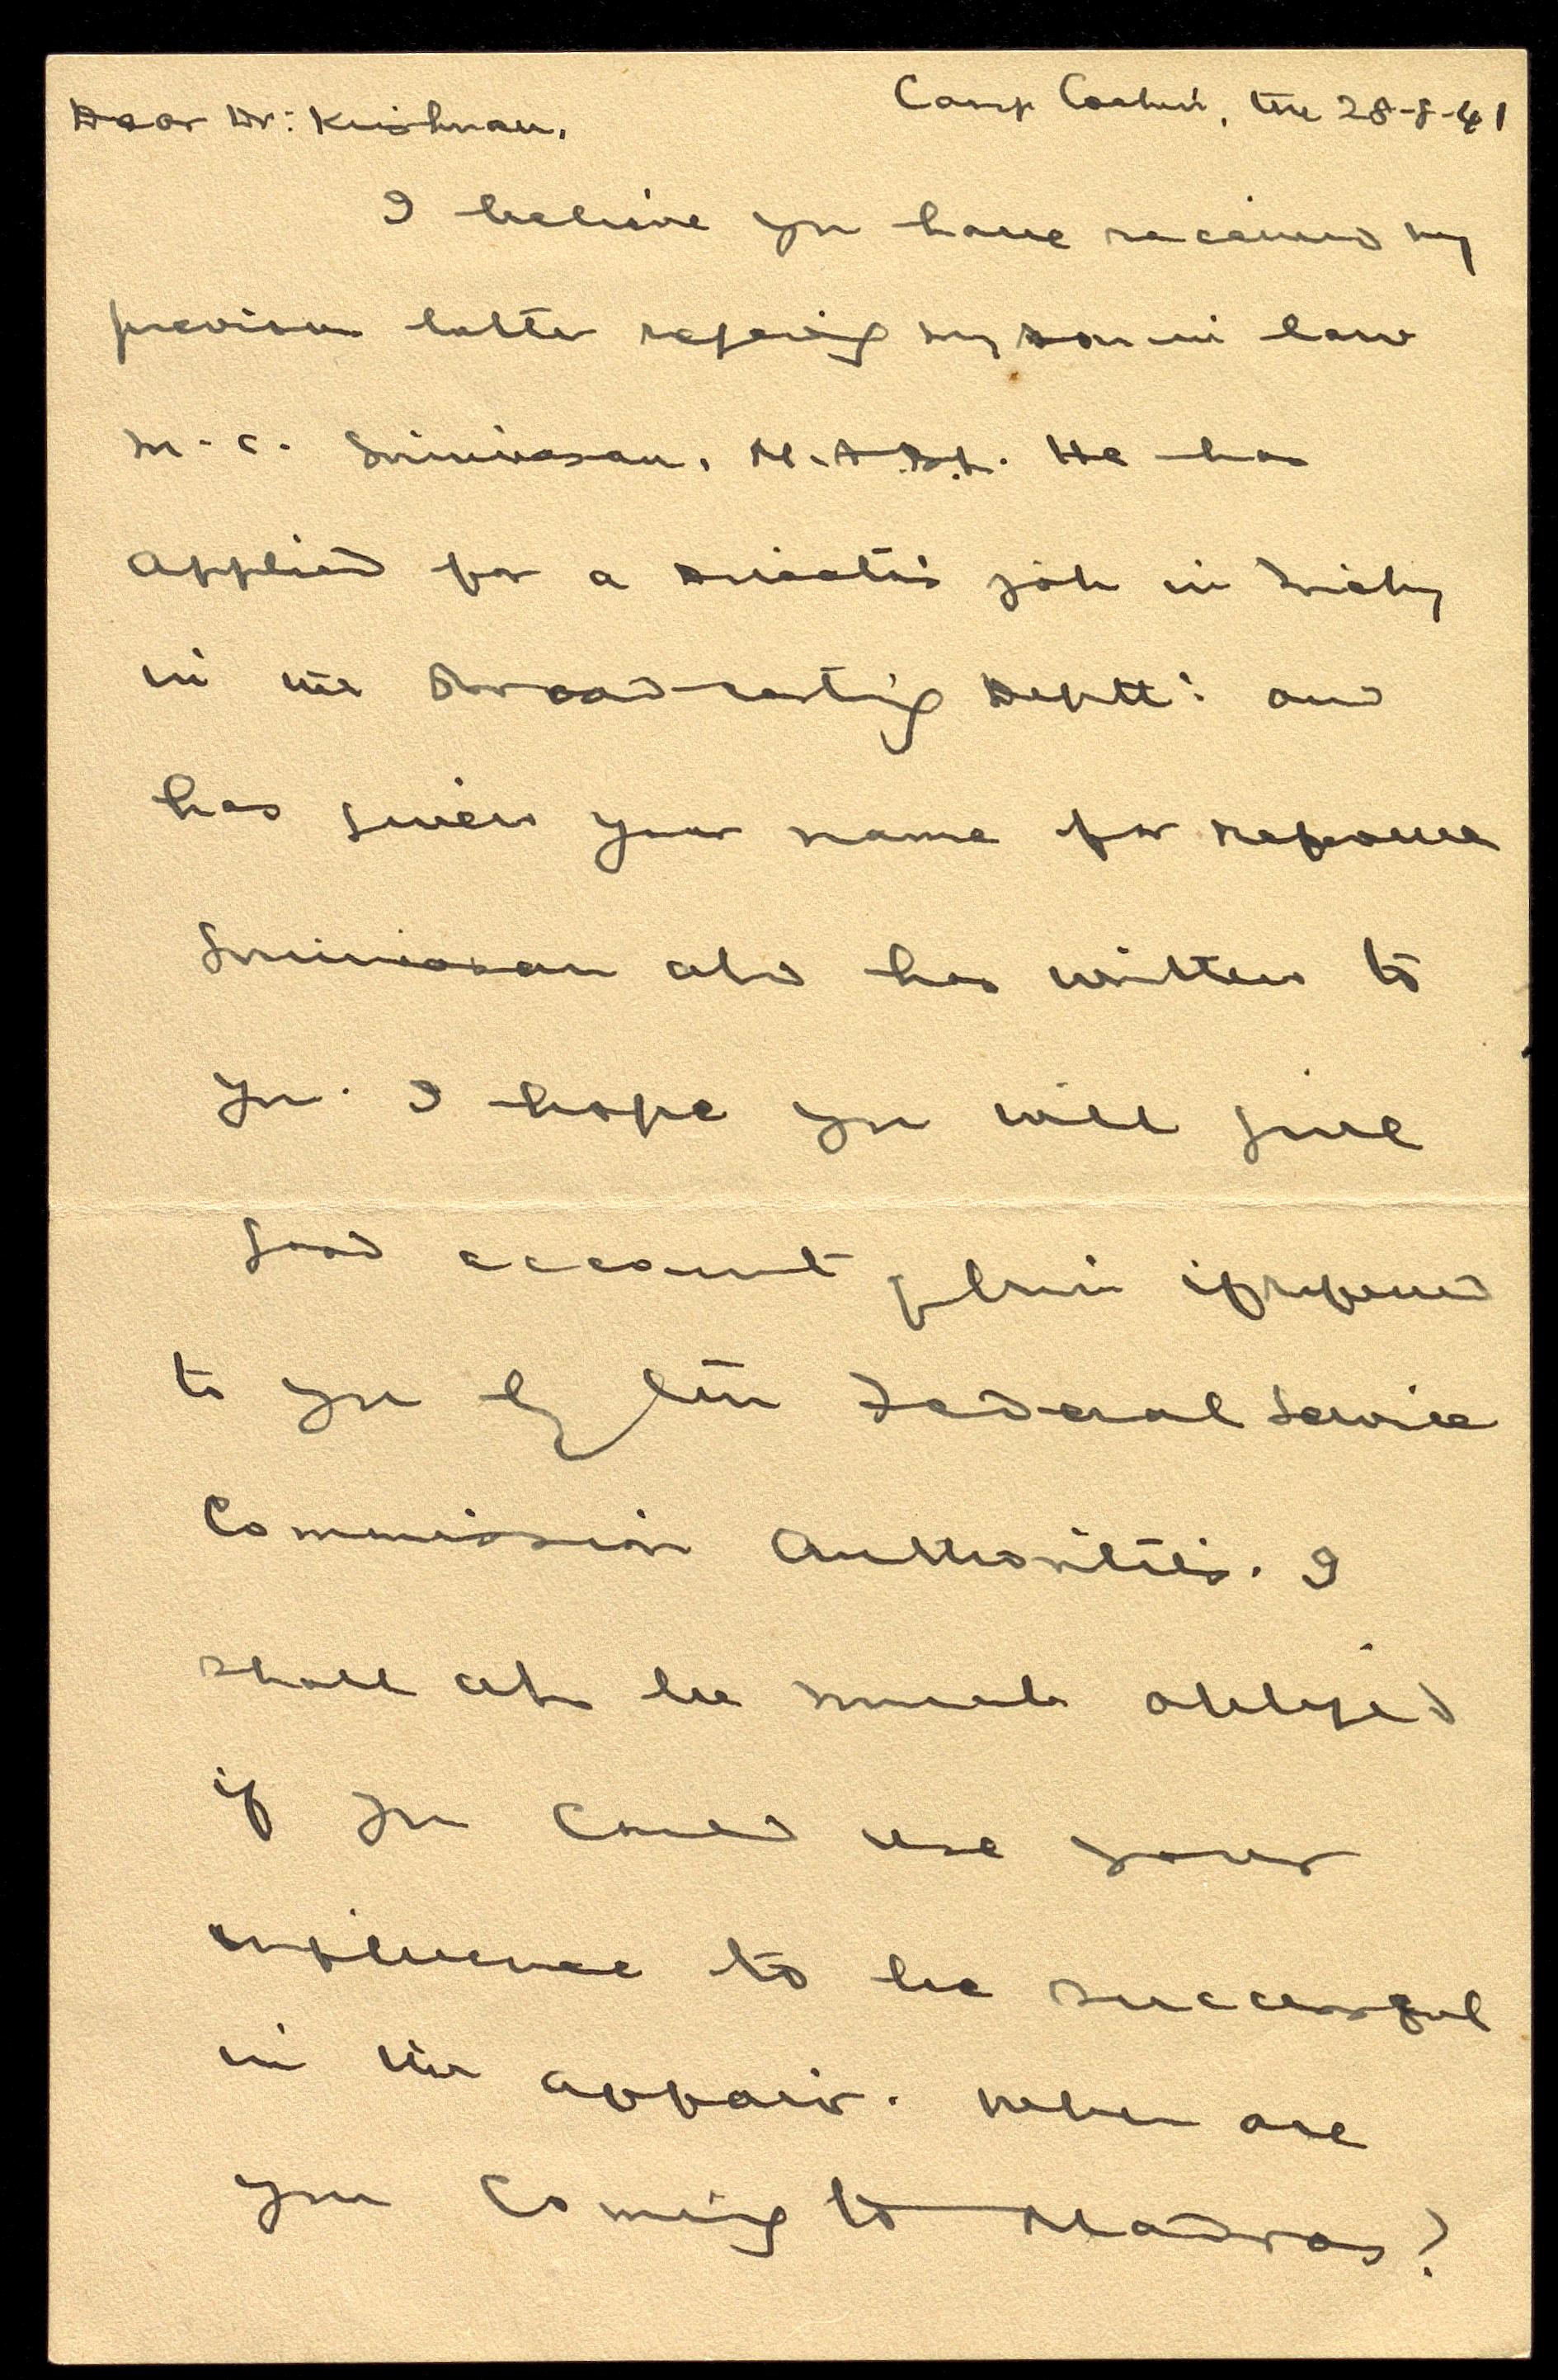 Camp Cochin, the 28-8-41
Dear Dr: Krishnan,
I believe you have received my
previous letter refering my son in law
M. C. Srinivasan, M.A.B.L. He has
applied for a Director's job in Trichy
in the Broadcasting Deptt: and
has given your name for reference
Srinivasan also has written to
you. I hope you will give
good account of him if refered
to you by the Federal Service
Commission Authorities. I
shall also be much obliged
if you could use your
influence to be successful
in the affair. When are
you coming to Madras?